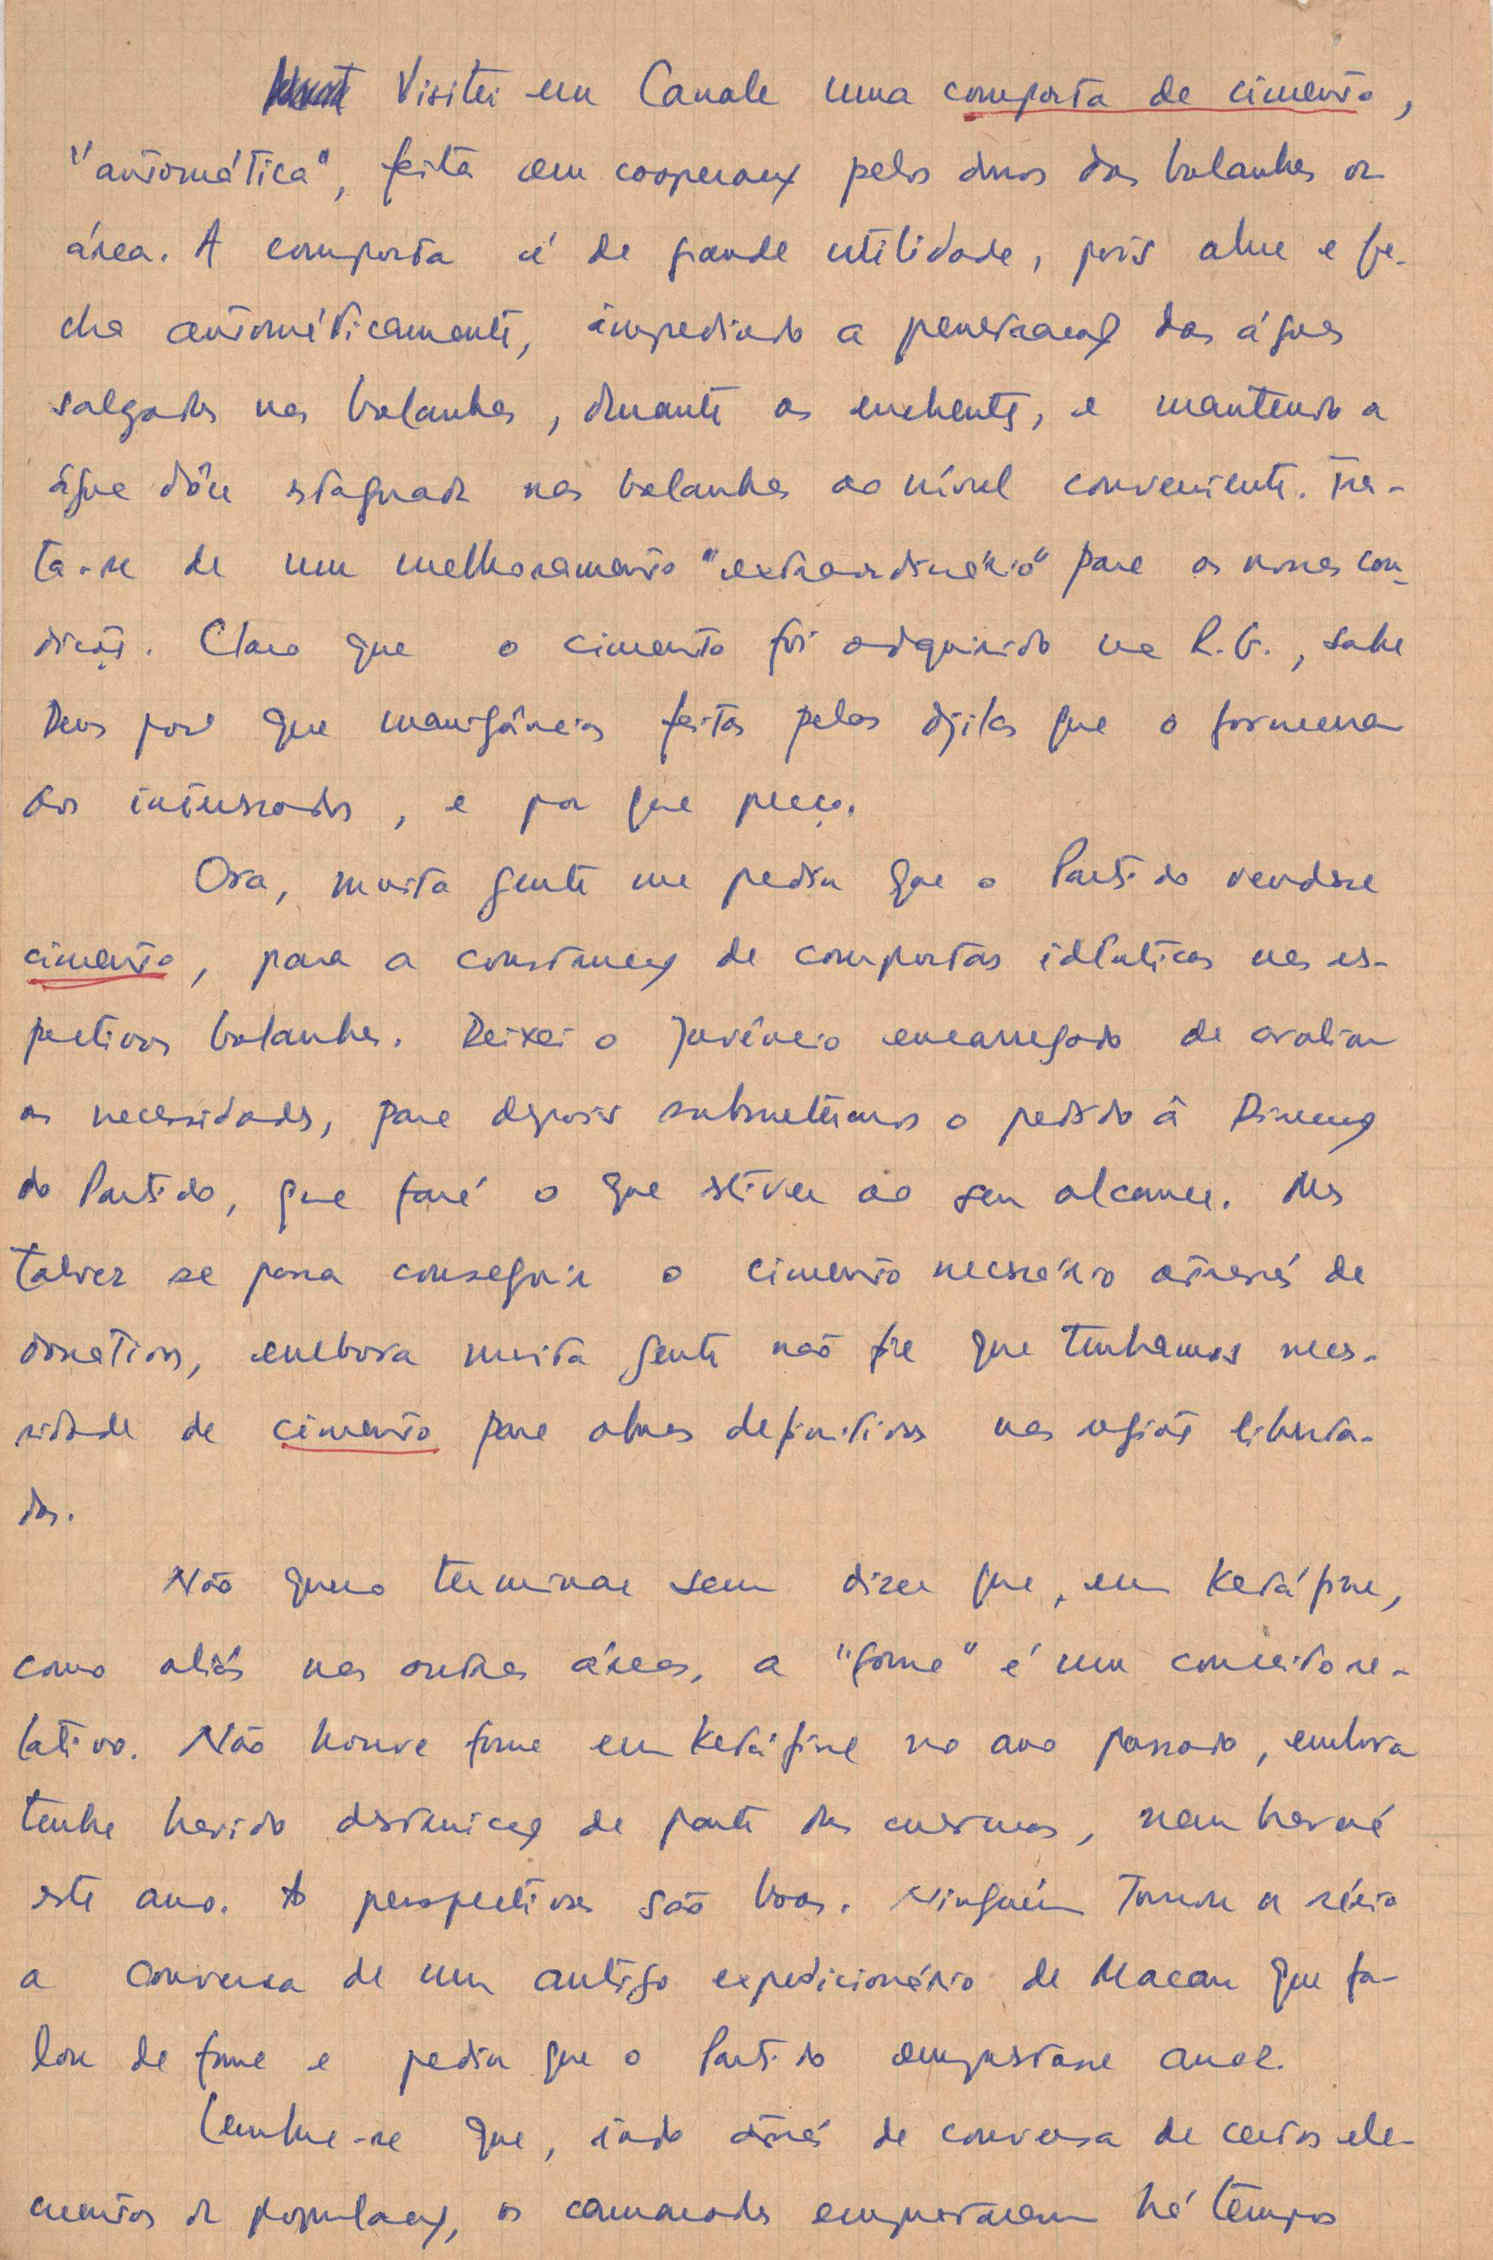 Visitei em Canale uma comporta de cimento,
"automática", feita em cooperação pelos donos das bolanhas da
área. A comporta é de grande utilidade, pois abre e fe-
cha automáticamente, impedindo a penetração das águas
salgadas nas bolanhas, durante as enchentes, e mantendo a
água dôce estagnada nas bolanhas ao nível conveniente. Tra-
ta-se de um melhoramento "extraordinário" para as nossas con-
dições. Claro que o cimento foi adquirido na R.G., sabe
Deus por que manigâncias feitas pelos djilas que o forneceram
aos interessados, e por que preço.
Ora, muita gente me pediu que o Partido vendesse
cimento, para a construção de comportas idênticas nas res-
pectivas bolanhas. Deixei o Juvêncio encarregado de avaliar
as necessidades, para depois submetermos o pedido à Direcção
do Partido, que fará o que estiver ao seu alcance. Mas
talvez se possa conseguir o cimento necessário através de
donativos, embora muita gente não creia que tenhamos neces-
sidade de cimento para obras definitivas nas regiões liberta-
das.
Não quero terminar sem dizer que, em Ketáfine,
como aliás nas outras áreas, a "fome" é um conceito re-
lativo. Não houve fome em Ketáfine no ano passado, embora
tenha havido destruição de parte das culturas, nem haverá
este ano. As perspectivas são boas. Ninguém tomou a sério
a conversa de um antigo expedicionário de Macau que fa-
lou de fome e pediu que o Partido emprestasse arroz.
Lembre-se que, indo atrás de conversa de certos ele-
mentos da população, os camaradas emprestaram há tempos